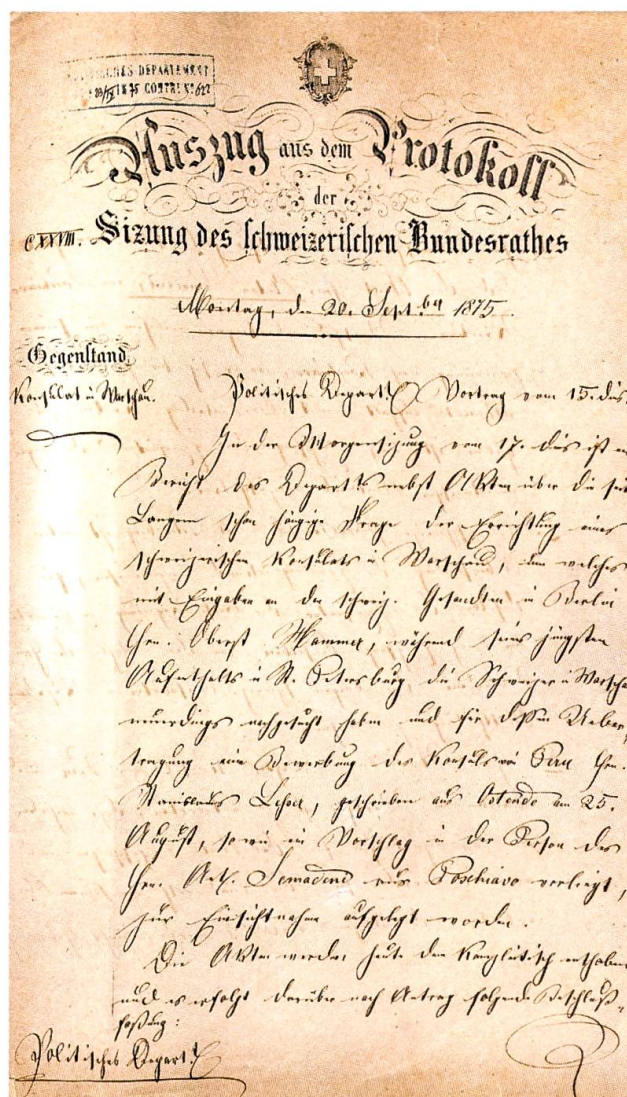 POLITISCHES DEPARTEMENT
23/IX 1875 CONTRL No 622
Auszug aus dem Protokoll
der
CXXVIII. Sizung des schweizerischen Bundesrathes
Montag, den 20. Septbr 1875.
Gegenstand
Konsulat in Warschau.
Politisches Departt Vortrag vom 15. dies.
In der Morgensizung vom 17. dies ist
Bericht des Departts nebst Akten über die seit
Langem schon hängige Frage der Errichtung eines
schweizerischen Konsulats in Warschau, um welches
mit Eingaben an den schweiz. Gesandten in Berlin
Hrn. Oberst Hammer, während seines jüngsten
Aufenthalts in St. Petersburg die Schweizer in Warschau
neuerdings nachgesucht haben und für dessen Ueber-
tragung eine Bewerbung des Konsuls von Peru Hrn.
Stanislaus Lesser, geschrieben aus Ostende am 25.
August, sowie ein Vorschlag in der Person des
Hrn. Ant. Semadeni aus Poschiavo vorliegt,
zur Einsichtnahme aufgelegt worden.
Die Akten werden heute dem Kanzleitisch enthoben
und es erfolgt darüber nach Antrag folgende Beschluß-
faßung:
Politisches Departt